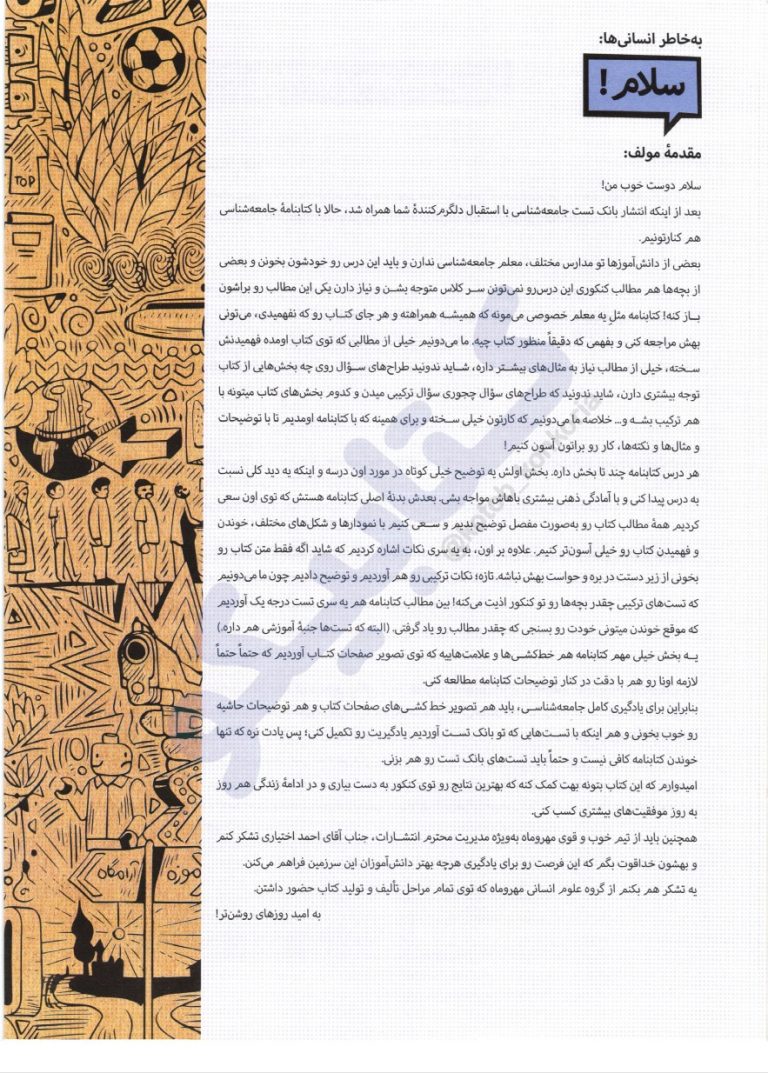 به‌خاطر انسانی‌ها:
سلام!
مقدمهٔ مولف:
سلام دوست خوب من!
بعد از اینکه انتشار بانک تست جامعه‌شناسی با استقبال دلگرم‌کنندهٔ شما همراه شد، حالا با کتابنامهٔ جامعه‌شناسی
هم کنارتونیم.
بعضی از دانش‌آموزها تو مدارس مختلف، معلم جامعه‌شناسی ندارن و باید این درس رو خودشون بخونن و بعضی
از بچه‌ها هم مطالب کنکوری این درس‌رو نمی‌تونن سر کلاس متوجه بشن و نیاز دارن یکی این مطالب رو براشون
باز کنه! کتابنامه مثل یه معلم خصوصی می‌مونه که همیشه همراهته و هر جای کتاب رو که نفهمیدی، می‌تونی
بهش مراجعه کنی و بفهمی که دقیقاً منظور کتاب چیه. ما می‌دونیم خیلی از مطالبی که توی کتاب اومده فهمیدنش
سخته، خیلی از مطالب نیاز به مثال‌های بیشتر داره، شاید ندونید طراح‌های سؤال روی چه بخش‌هایی از کتاب
توجه بیشتری دارن، شاید ندونید که طراح‌های سؤال چجوری سؤال ترکیبی میدن و کدوم بخش‌های کتاب میتونه با
هم ترکیب بشه و... خلاصه ما می‌دونیم که کارتون خیلی سخته و برای همینه که با کتابنامه اومدیم تا با توضیحات
و مثال‌ها و نکته‌ها، کار رو براتون آسون کنیم!
هر درس کتابنامه چند تا بخش داره. بخش اولش یه توضیح خیلی کوتاه در مورد اون درسه و اینکه یه دید کلی نسبت
به درس پیدا کنی و با آمادگی ذهنی بیشتری باهاش مواجه بشی. بعدش بدنهٔ اصلی کتابنامه هستش که توی اون سعی
کردیم همهٔ مطالب کتاب رو به‌صورت مفصل توضیح بدیم و سعی کنیم با نمودارها و شکل‌های مختلف، خوندن
و فهمیدن کتاب رو خیلی آسون‌تر کنیم. علاوه بر اون، به یه سری نکات اشاره کردیم که شاید اگه فقط متن کتاب رو
بخونی از زیر دستت در بره و حواست بهش نباشه. تازه؛ نکات ترکیبی رو هم آوردیم و توضیح دادیم چون ما می‌دونیم
که تست‌های ترکیبی چقدر بچه‌ها رو تو کنکور اذیت می‌کنه! بین مطالب کتابنامه هم یه سری تست درجه یک آوردیم
که موقع خوندن میتونی خودت رو بسنجی که چقدر مطالب رو یاد گرفتی. (البته که تست‌ها جنبهٔ آموزشی هم داره.)
یه بخش خیلی مهم کتابنامه هم خط‌کشی‌ها و علامت‌هاییه که توی تصویر صفحات کتاب آوردیم که حتماً حتماً
لازمه اونا رو هم با دقت در کنار توضیحات کتابنامه مطالعه کنی.
بنابراین برای یادگیری کامل جامعه‌شناسی، باید هم تصویر خط کشی‌های صفحات کتاب و هم توضیحات حاشیه
رو خوب بخونی و هم اینکه با تست‌هایی که تو بانک تست آوردیم یادگیریت رو تکمیل کنی؛ پس یادت نره که تنها
خوندن کتابنامه کافی نیست و حتماً باید تست‌های بانک تست رو هم بزنی.
امیدوارم که این کتاب بتونه بهت کمک کنه که بهترین نتایج رو توی کنکور به دست بیاری و در ادامهٔ زندگی هم روز
به روز موفقیت‌های بیشتری کسب کنی.
همچنین باید از تیم خوب و قوی مهروماه به‌ویژه مدیریت محترم انتشارات، جناب آقای احمد اختیاری تشکر کنم
و بهشون خداقوت بگم که این فرصت رو برای یادگیری هرچه بهتر دانش‌آموزان این سرزمین فراهم می‌کنن.
یه تشکر هم بکنم از گروه علوم انسانی مهروماه که توی تمام مراحل تألیف و تولید کتاب حضور داشتن.
به امید روزهای روشن‌تر!
TOP
موزه
آرامگاه